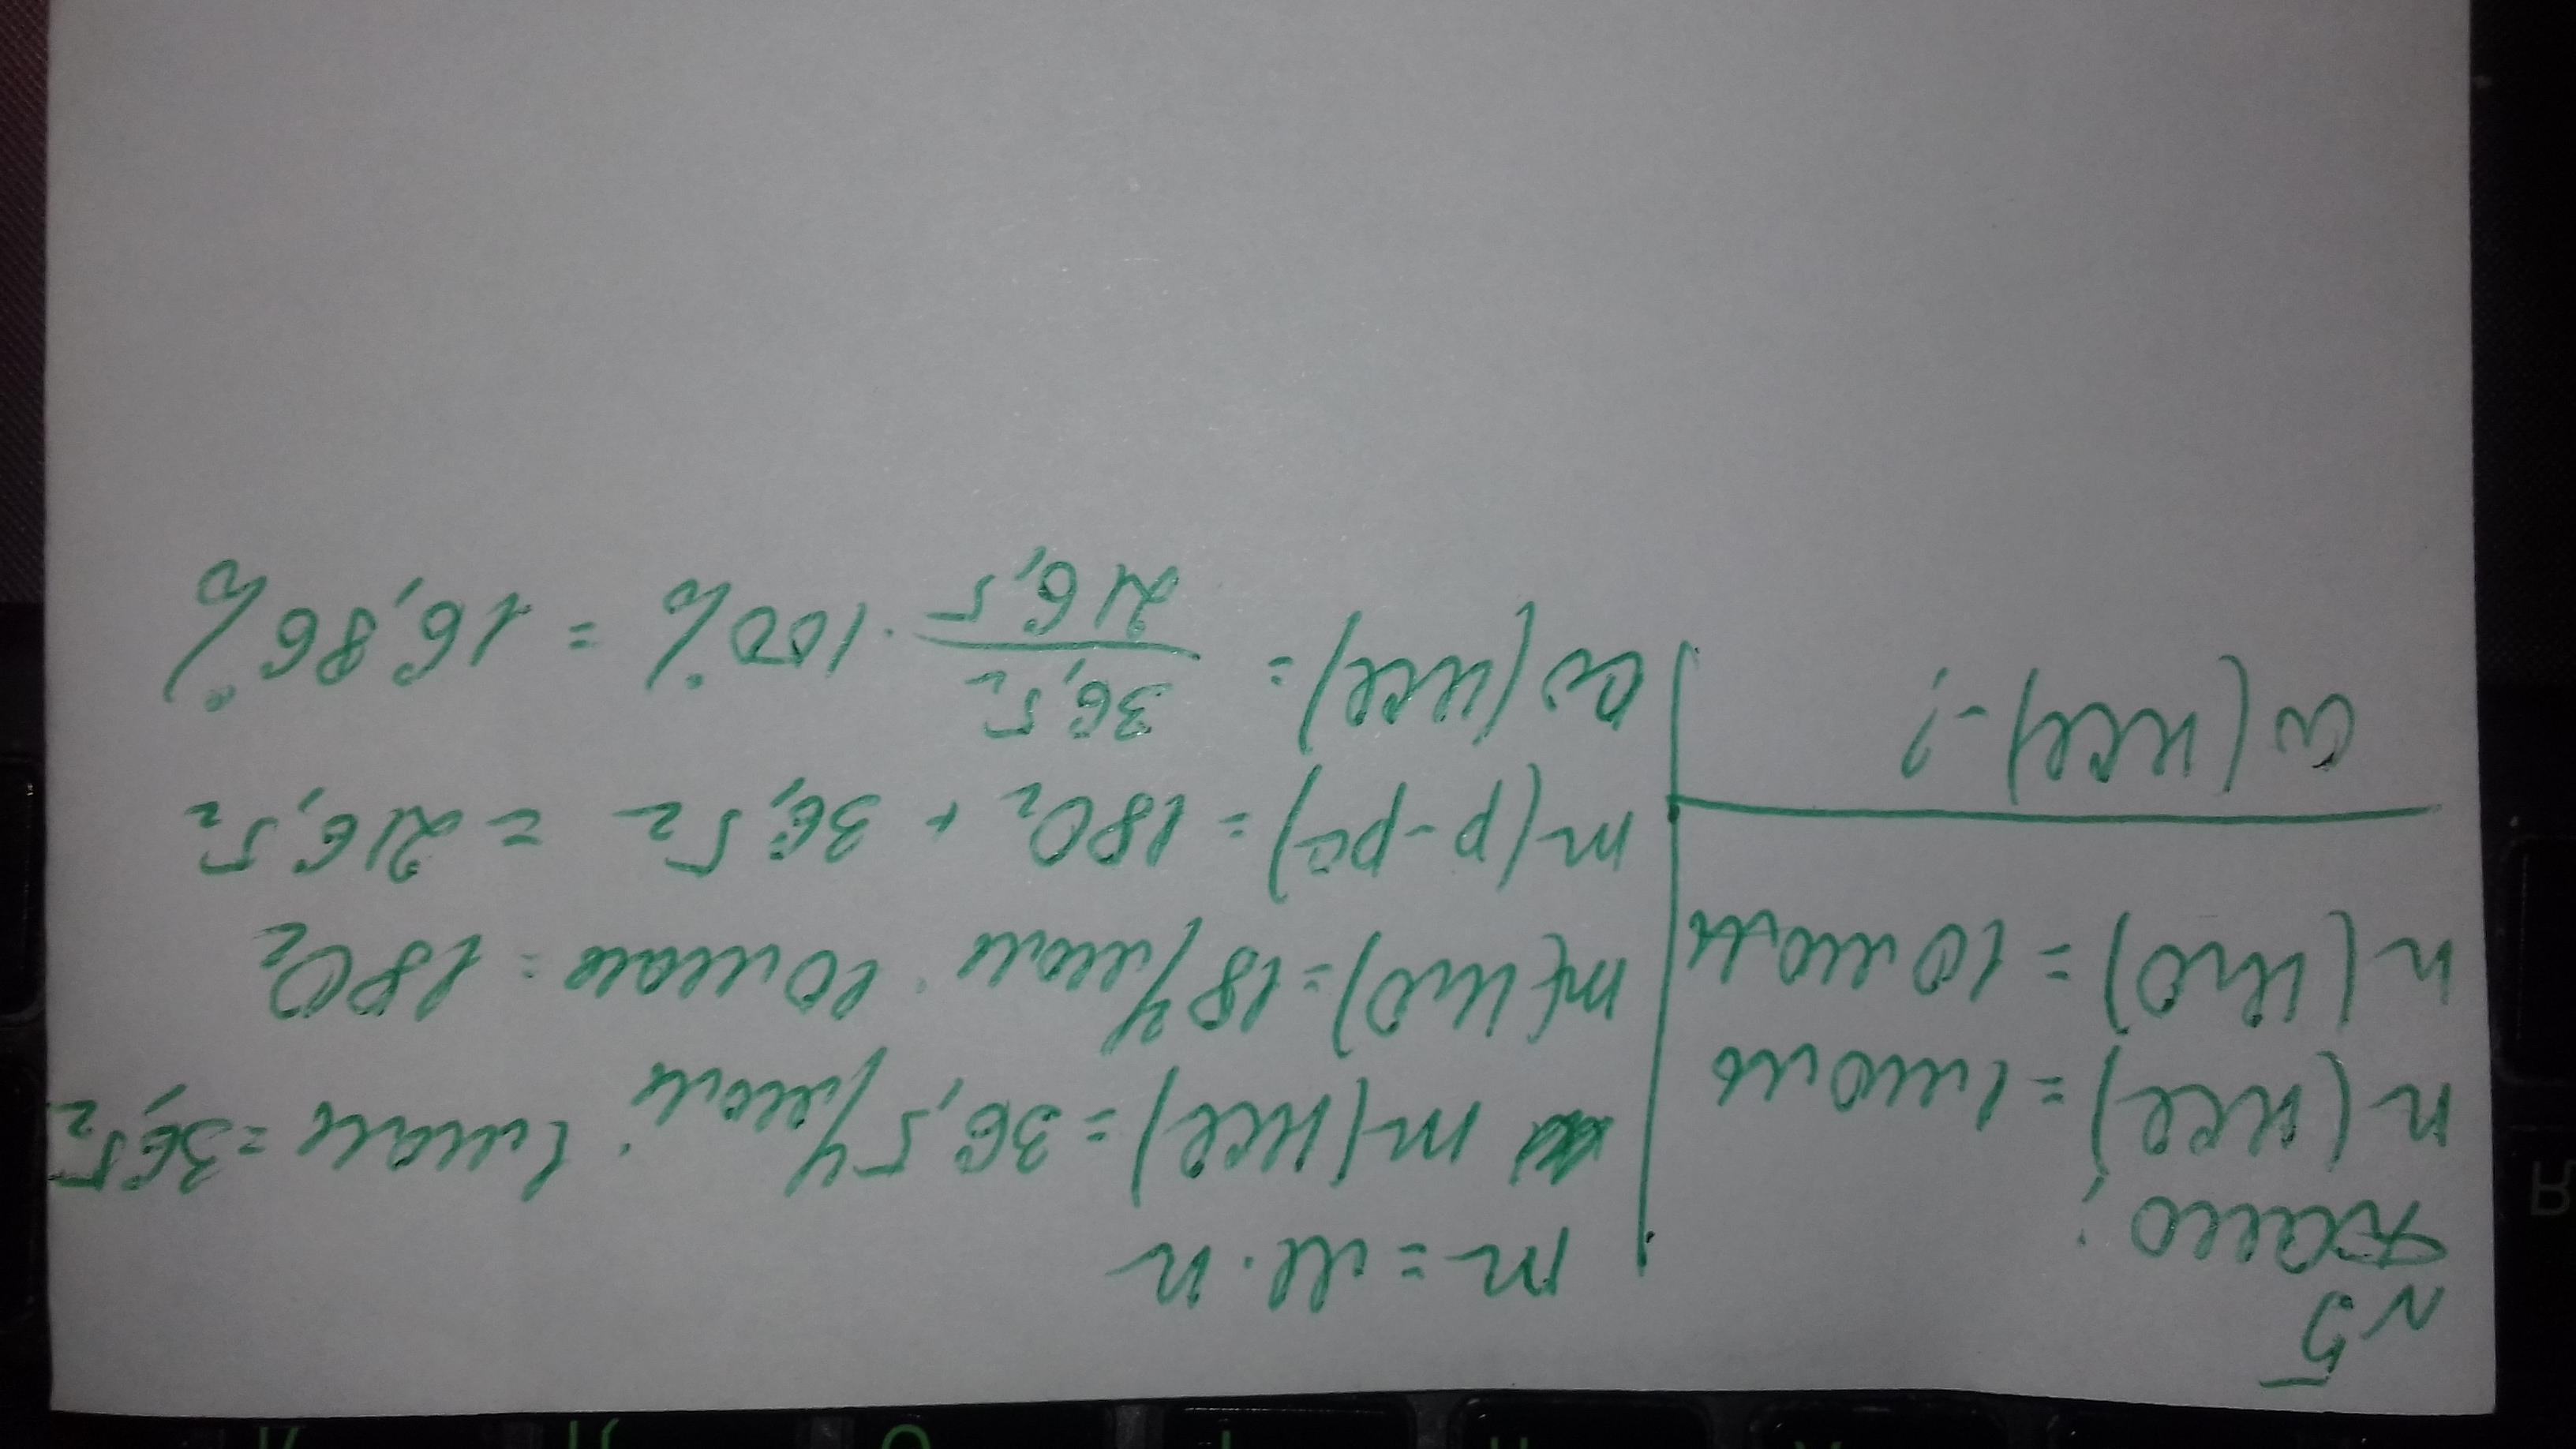 №5
Дано:
n(HCl) = 1 моль
n(H2O) = 10 моль
ω(HCl) - ?
m = M · n
m(HCl) = 36,5 г/моль · 1 моль = 36,5 г
m(H2O) = 18 г/моль · 10 моль = 180 г
m(р-ра) = 180 г + 36,5 г = 216,5 г
ω(HCl) = 36,5 г / 216,5 · 100% = 16,86%